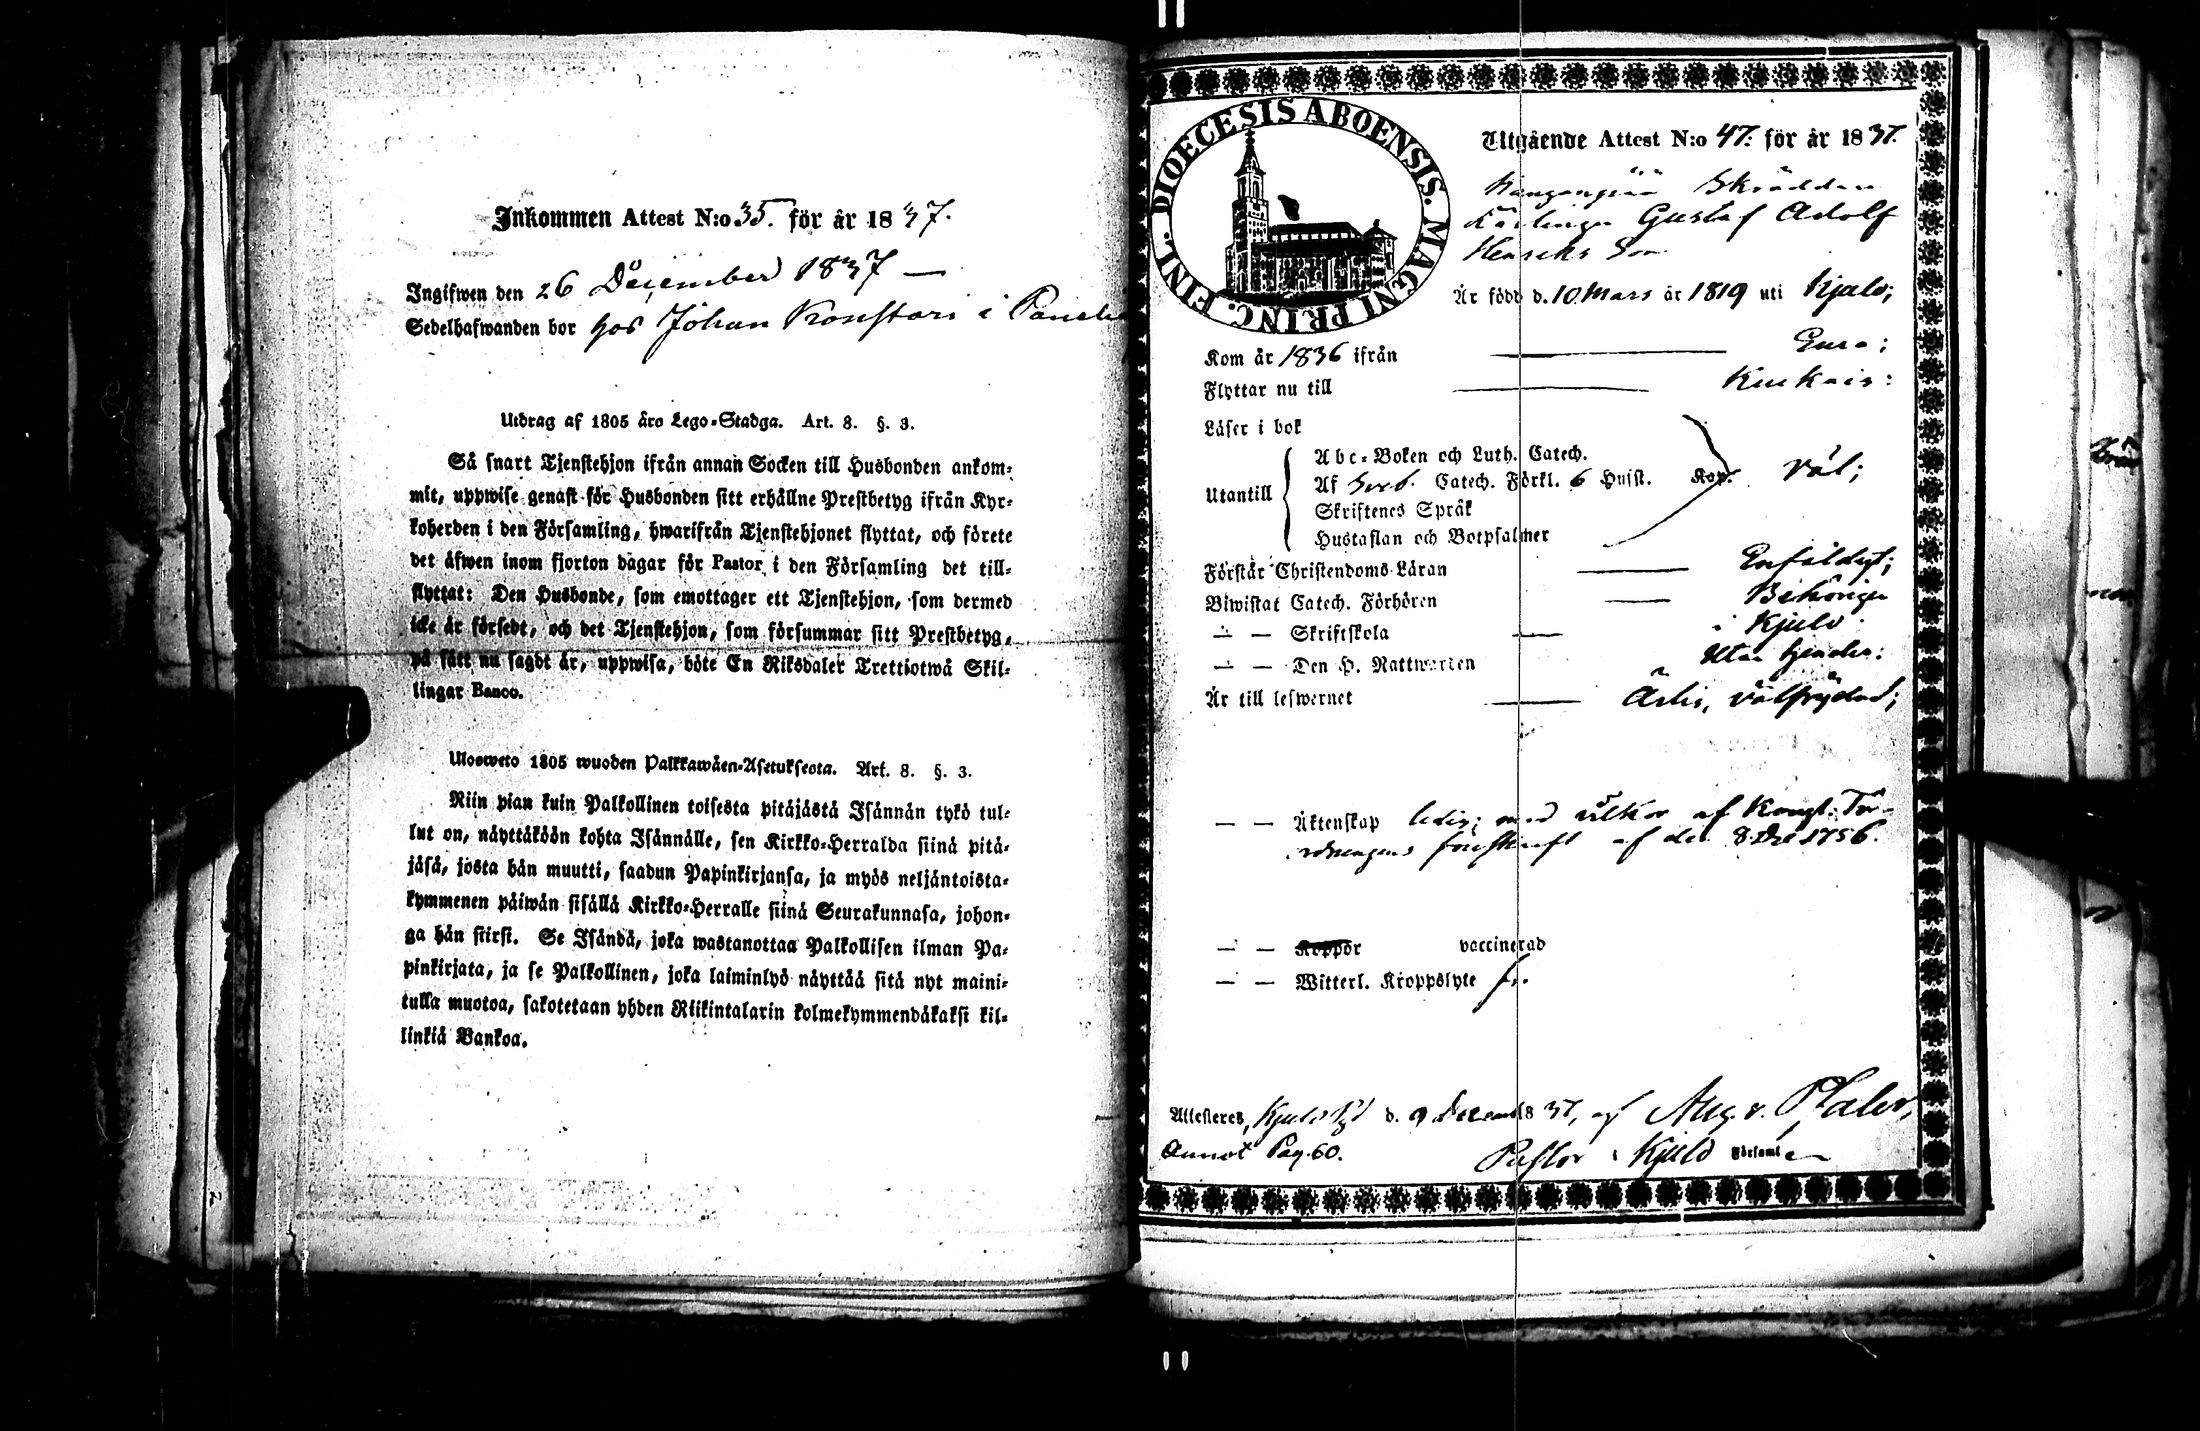 Inkommen Attest N:o 35. för år 1837.
Ingifwen den 26 December 1837 —
Sedelhafwanden bor hos Johan i
Utdrag af 1805 års Lego-Stadga. Art. 8. §. 3.
Så snart Tjenstehjon ifrån annan Socken till Husbonden ankom-
mit, uppwise genast för Husbonden sitt erhållne Prestbetyg ifrån Kyr-
koherden i den Församling, hwarifrån Tjenstehjonet flyttat, och förete
det äfwen inom fjorton dagar för Pastor i den Församling det till-
flyttat: Den Husbonde, som emottager ett Tjenstehjon, som dermed
icke är försedt, och det Tjenstehjon, som försummar sitt Prestbetyg,
på sätt nu sagdt är, uppwisa, böte En Riksdaler Trettiotwå Skil-
lingar Banco.
Ulosweto 1805 wuoden Palkkawäen-Asetuksesta. Art. 8. §. 3.
Niin pian kuin Palkollinen toisesta pitäjästä Isännän tykö tul-
lut on, näyttäköön kohta Isännälle, sen Kirkko-Herralda siinä pitä-
jäsä, josta hän muutti, saadun Papinkirjansa, ja myös neljäntoista-
kymmenen päiwän sisällä Kirkko-Herralle siinä Seurakunnasa, johon-
ga hän siirsi. Se Isändä, joka wastanottaa Palkollisen ilman Pa-
pinkirjata, ja se Palkollinen, joka laiminlyö näyttää sitä nyt maini-
tulla muotoa, sakotetaan yhden Riikintalarin kolmekymmendäkaksi kil-
linkiä Bankoa.
DIOECESIS ABOENSIS. MAGNI PRINC. FINL.
Utgående Attest N:o 47. för år 1837.
Skräddare
Gustaf Adolf
Henriks Son
Är född d. 10 Mars år 1819 uti Kjulo;
Kom år 1836 ifrån — Eura;
Flyttar nu till —
Läser i bok
Utantill
Abc-Boken och Luth. Catech.
Af Sveb. Catech. Förkl. 6 Hufst. Kap. väl;
Skriftenes Språk
Hustaflan och Botpsalmer
Förstår Christendoms-Läran — Enfaldigt;
Biwistat Catech. Förhören — Behörigen
— — Skriftskola — i Kjulo
— — Den H. Nattwarden
Är till lefwernet — Ärlig, välfrejdad;
— — Äktenskap ledig; med vilkor af Kongl. För-
ordningens föreskrift af den 8 1756.
— — Koppor vaccinerad
— — Witterl. Kroppslyte fri.
Attesteras, Kjulo d. 9 Decemb 1837, af Aug. v. Platen,
Annot Pag. 60. Pastor i Kjulo Församl